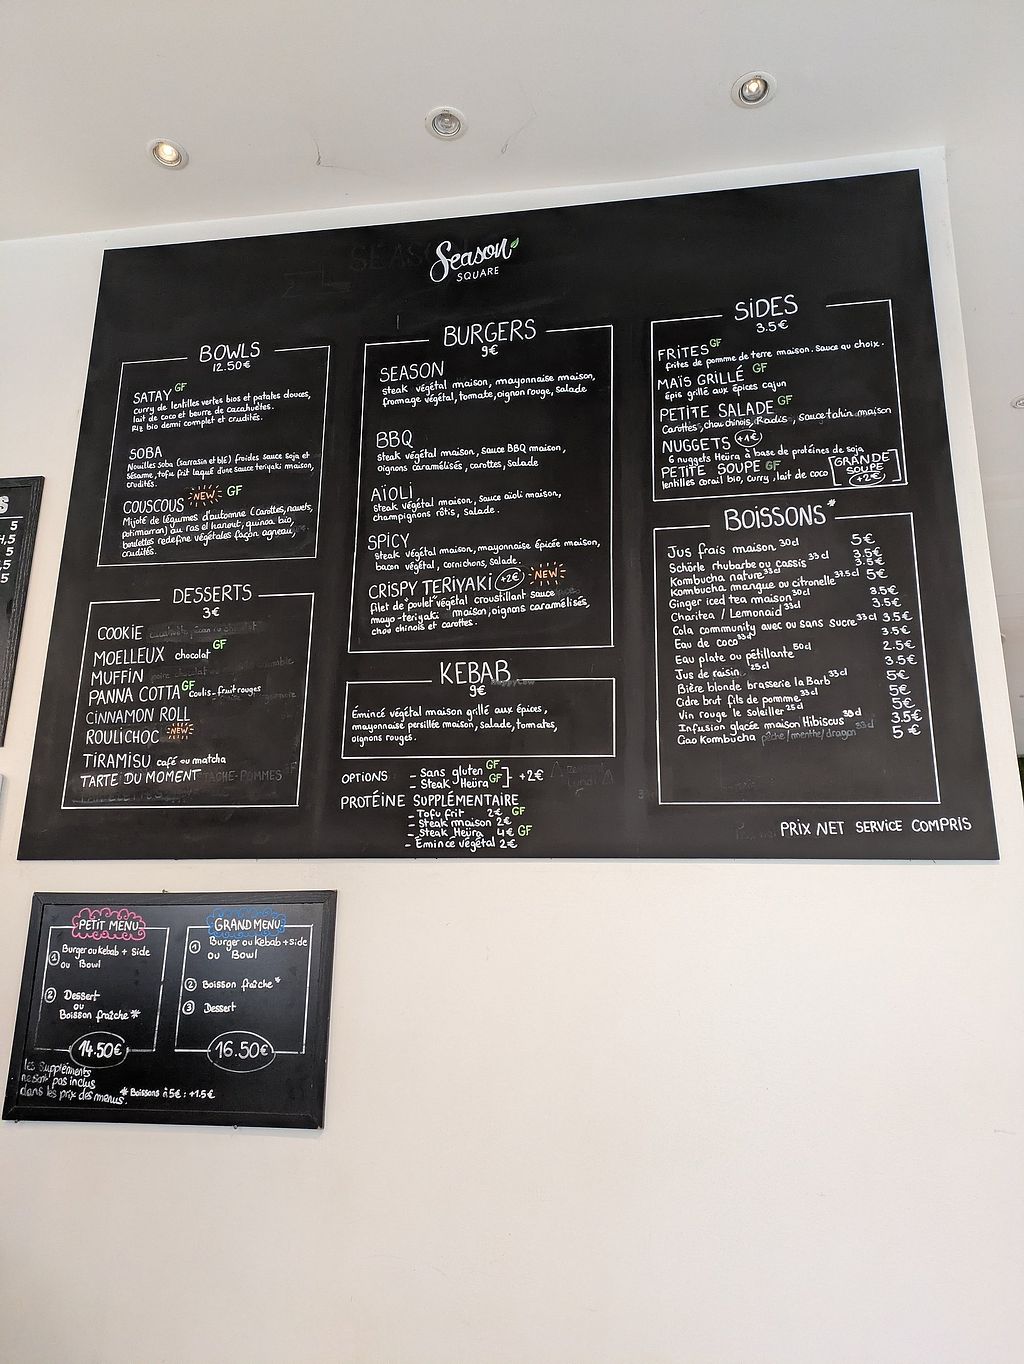 Season
SQUARE
BOWLS
12.50€
SATAY GF
Curry de lentilles vertes bios et patates douces,
lait de coco et beurre de cacahuètes.
Riz bio demi complet et crudités.
SOBA
Nouilles soba (sarrasin et blé) froides sauce soja et
sésame, tofu frit laqué d'une sauce teriyaki maison,
crudités.
COUSCOUS NEW GF
Mijoté de légumes d'automne (carottes, navets,
potimarron) au ras el hanout, quinoa bio,
boulettes redefine végétales façon agneau,
crudités.
DESSERTS
3€
COOKIE
MOELLEUX chocolat GF
MUFFIN
PANNA COTTA GF Coulis-fruit rouges
CINNAMON ROLL
ROULICHOC NEW
TIRAMISU café ou matcha
TARTE DU MOMENT
BURGERS
9€
SEASON
Steak végétal maison, mayonnaise maison,
fromage végétal, tomate, oignon rouge, salade
BBQ
Steak végétal maison, sauce BBQ maison,
oignons caramélisés, carottes, salade
AÏOLI
Steak végétal maison, sauce aïoli maison,
champignons rôtis, salade.
SPICY
Steak végétal maison, mayonnaise épicée maison,
bacon végétal, cornichons, salade.
CRISPY TERIYAKI +2€ NEW
filet de "poulet" végétal croustillant sauce
mayo-teriyaki maison, oignons caramélisés,
chou chinois et carottes.
KEBAB
9€
Émincé végétal maison grillé aux épices,
mayonnaise persillée maison, salade, tomates,
oignons rouges.
OPTIONS - Sans gluten GF
- Steak Heüra GF +2€
PROTÉINE SUPPLÉMENTAIRE
- Tofu frit 2€ GF
- Steak maison 2€
- Steak Heüra 4€ GF
- Émincé végétal 2€
SIDES
3.5€
FRITES GF
frites de pomme de terre maison. Sauce au choix.
MAÏS GRILLÉ GF
épis grillé aux épices cajun
PETITE SALADE GF
Carottes, chou chinois, Radis, Sauce tahin maison
NUGGETS +1€
6 nuggets Heüra à base de protéines de soja
PETITE SOUPE GF
lentilles corail bio, curry, lait de coco
GRANDE
SOUPE
+2€
BOISSONS*
Jus frais maison 30cl 5€
Schörle rhubarbe ou cassis 33cl 3.5€
Kombucha nature 33cl 3.5€
Kombucha mangue ou citronelle 37.5cl 5€
Ginger iced tea maison 30cl 3.5€
Charitea / Lemonaid 33cl 3.5€
Cola community avec ou sans sucre 33cl 3.5€
Eau de coco 33cl 3.5€
Eau plate ou pétillante 50cl 2.5€
Jus de raisin 25cl 3.5€
Bière blonde brasserie la Barb 33cl 5€
Cidre brut fils de pomme 33cl 5€
Vin rouge le soleiller 25cl 5€
Infusion glacée maison Hibiscus 30cl 3.5€
Gao Kombucha pêche/menthe/dragon 33cl 5€
PRIX NET SERVICE COMPRIS
PETIT MENU
① Burger ou kebab + Side
ou Bowl
② Dessert
ou
Boisson fraîche *
14.50€
GRAND MENU
① Burger ou kebab + side
ou Bowl
② Boisson fraîche *
③ Dessert
16.50€
les suppléments
ne sont pas inclus
dans les prix des menus.
* Boissons à 5€ : +1.5€